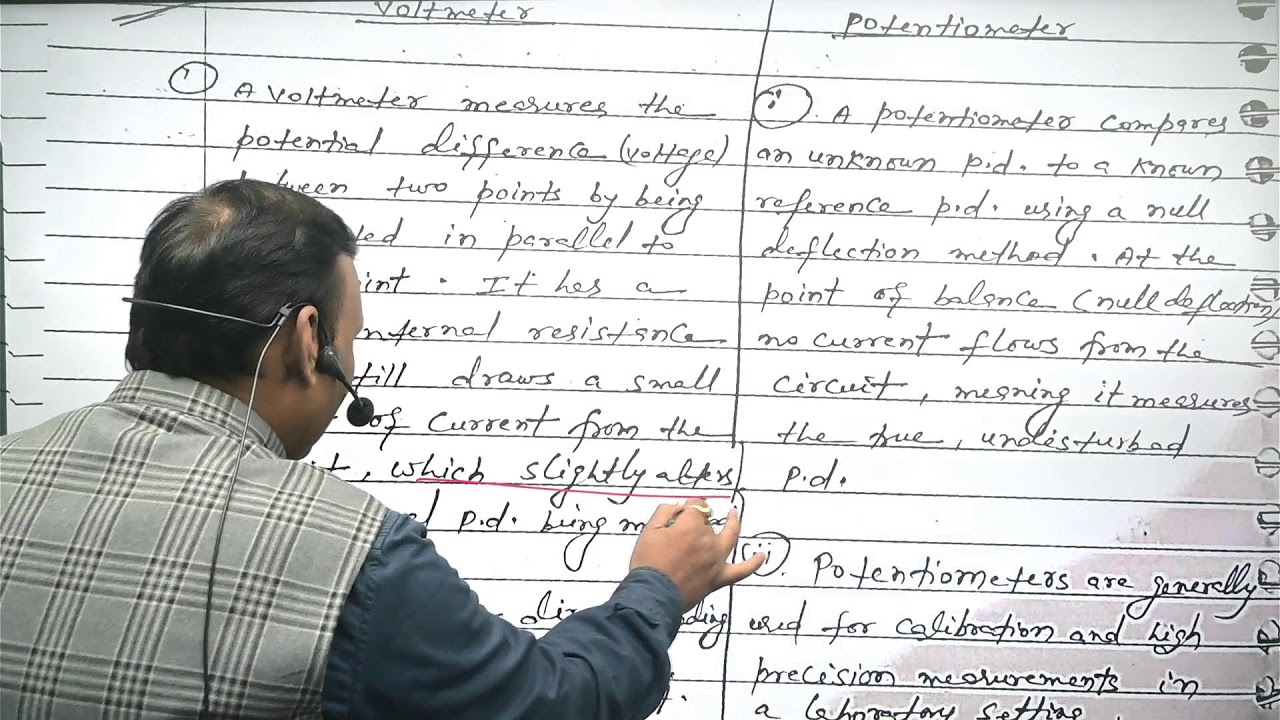 Voltmeter
A voltmeter measures the
potential difference (voltage)
two points by being
in parallel to
It has a
resistance
draws a small
of current from the
which slightly alters
p.d. being
Potentiometer
i. A potentiometer compares
an unknown p.d. to a known
reference p.d. using a null
deflection method. At the
point of balance (null deflection)
no current flows from the
circuit, meaning it measures
the true, undisturbed
p.d.
(ii). Potentiometers are generally
used for calibration and high
precision measurements in
a laboratory setting